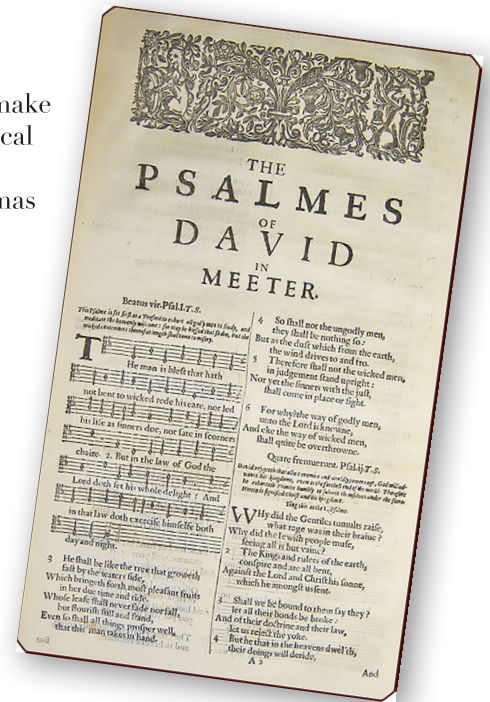 make
cal
mas
THE
PSALMES
OF
DAVID
IN
MEETER.
Beatus vir. Psal. I. T. S.
This Psalme is set first as a Preface to exhort all godly men to study, and
meditate the heavenly wisdome: for they be blessed that so doe, but the
wicked contemners thereof at length shall come to misery.
THe man is blest that hath
not bent to wicked rede his eare, nor led
his life as sinners doe, nor sate in scorners
chaire. 2. But in the law of God the
Lord doth set his whole delight: And
in that law doth exercise himselfe both
day and night.
3 He shall be like the tree that groweth
fast by the waters side,
Which bringeth forth most pleasant fruits
in her due time and tide.
Whose leafe shall never fade nor fall,
but flourish still and stand,
Even so shall all things prosper well,
that this man takes in hand.
4 So shall not the ungodly men,
they shall be nothing so:
But as the dust which from the earth,
the wind drives to and fro.
5 Therefore shall not the wicked men,
in judgement stand upright:
Nor yet the sinners with the just,
shall come in place or sight.
6 For why? the way of godly men,
unto the Lord is knowne,
And eke the way of wicked men,
shall quite be overthrowne.
Quare fremuerunt. Psal. ij. T. S.
Sing this as the 1. Psalme.
WHy did the Gentiles tumults raise,
what rage was in their braine?
Why did the Iewish people muse,
seeing all is but vaine?
2 The Kings and rulers of the earth,
conspire and are all bent,
Against the Lord and Christ his sonne,
which he amongst us sent.
3 Shall we be bound to them say they?
let all their bonds be broke:
And of their doctrine and their law,
let us reject the yoke.
4 But he that in the heavens dwel'th,
their doings will deride,
A 2
And